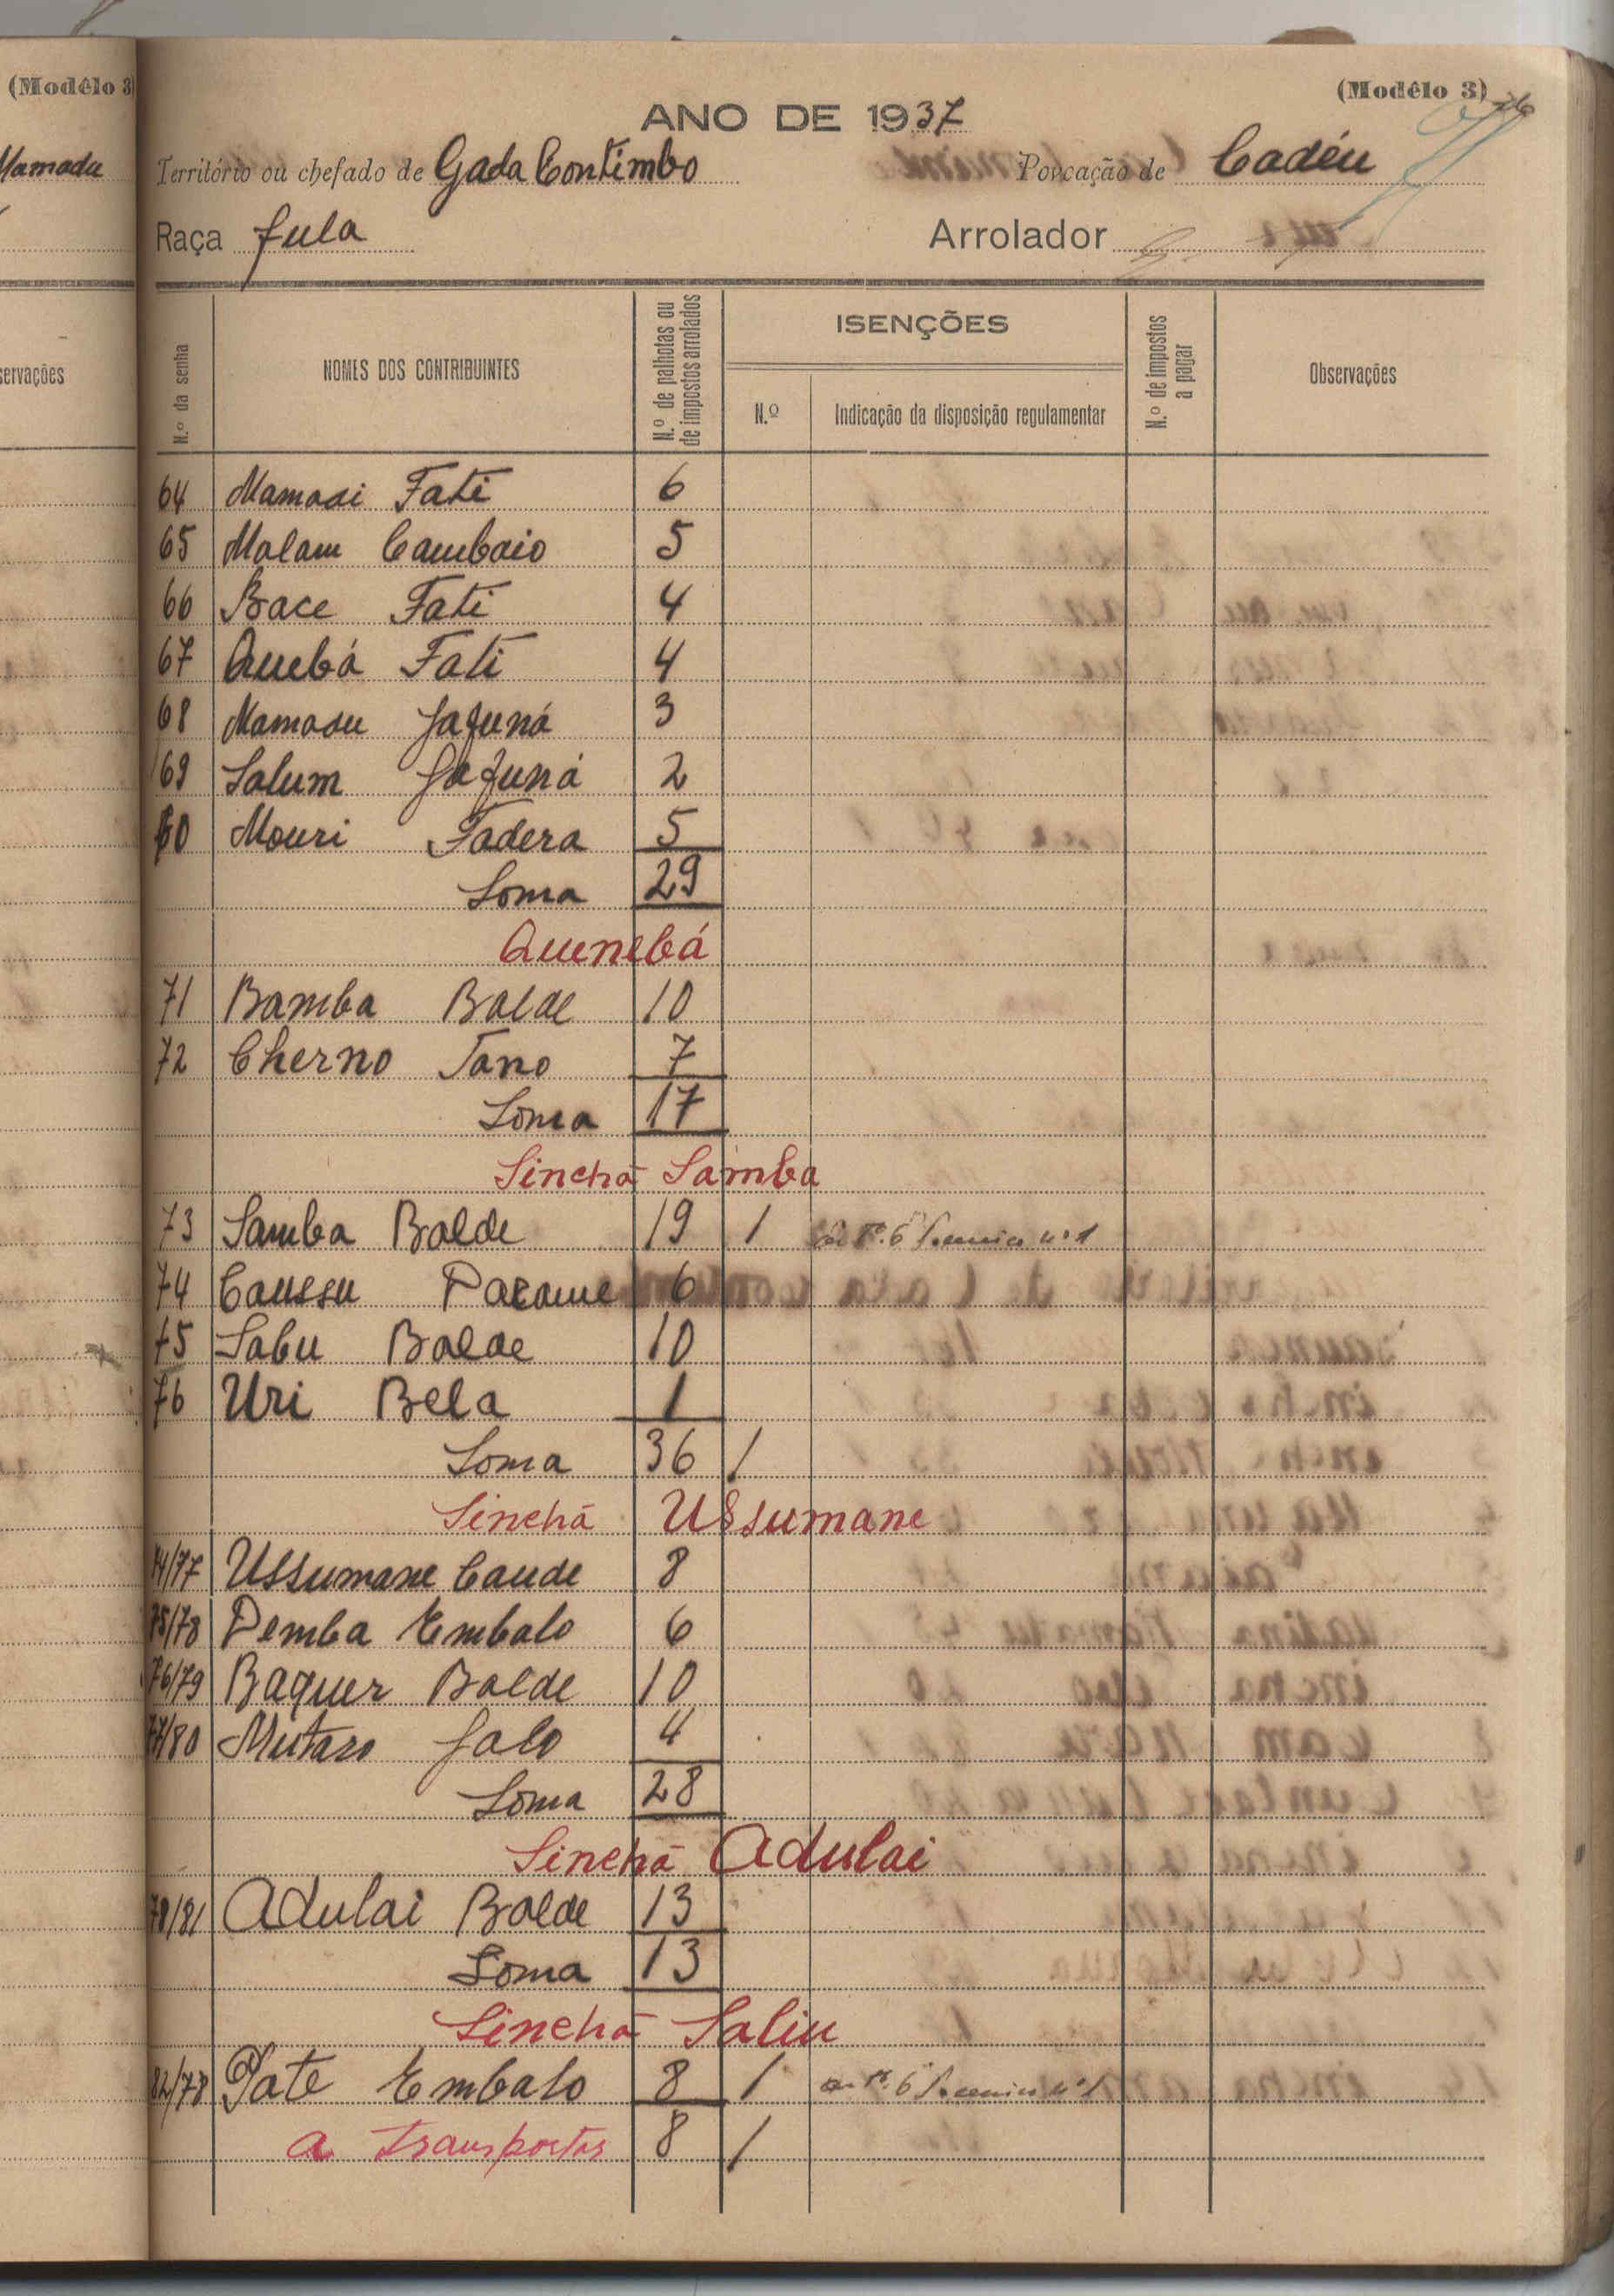 (Modêlo 3)
(Modêlo 3) 76
ANO DE 1937
Mamadu
Território ou chefado de Gada Contimbo Povoação de Cadéu
Raça fula Arrolador
servações
N.º da senha NOMES DOS CONTRIBUINTES N.º de palhotas ou de impostos arrolados ISENÇÕES N.º de impostos a pagar Observações
N.º Indicação da disposição regulamentar
64 Mamadi Fati 6
65 Malam Cambaio 5
66 Bace Fati 4
67 Quebá Fati 4
68 Mamadu Jafuná 3
69 Salum Jafuná 2
60 Mouri Fadera 5
Soma 29
Quenebá
71 Bamba Balde 10
72 Cherno Jano 7
Soma 17
Sinchã Samba
73 Samba Balde 19 1 n.º 1
74 Caussu 6
75 Sabu Balde 10
76 Uri Bela 1
Soma 36 1
Sinchã Ussumane
74/77 Ussumane Cande 8
75/78 Demba Embalo 6
76/79 Baquer Balde 10
77/80 Mutaro Jalo 4
Soma 28
Sinchã Adulai
78/81 Adulai Balde 13
Soma 13
Sinchã Saliu
82/78 Pate Embalo 8 1 n.º 1
a transportar 8 1